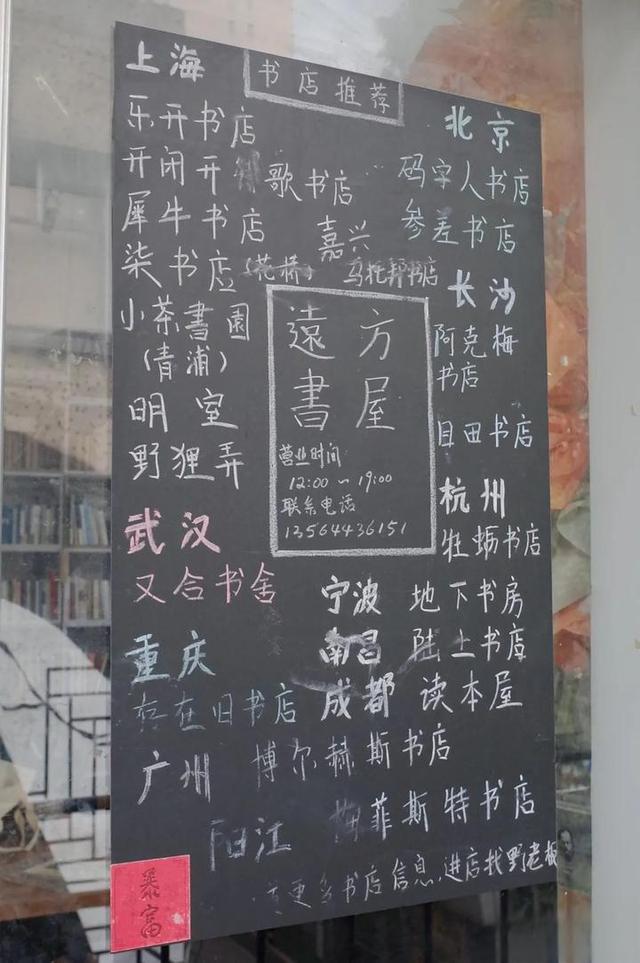 书店推荐
上海
乐开书店
开闭开
歌书店
犀牛书店
柒书店（花桥）
小茶書園
（青浦）
明室
野狸弄
嘉兴
乌托邦书店
北京
码字人书店
参差书店
长沙
阿克梅
书店
目田书店
杭州
牡蛎书店
遠方
書屋
营业时间
12:00～19:00
联系电话
13564436151
武汉
又合书舍
宁波 地下书房
南昌 陆上书店
成都 读本屋
重庆
存在旧书店
广州 博尔赫斯书店
阳江 梅菲斯特书店
更多书店信息,进店找野老板
暴富